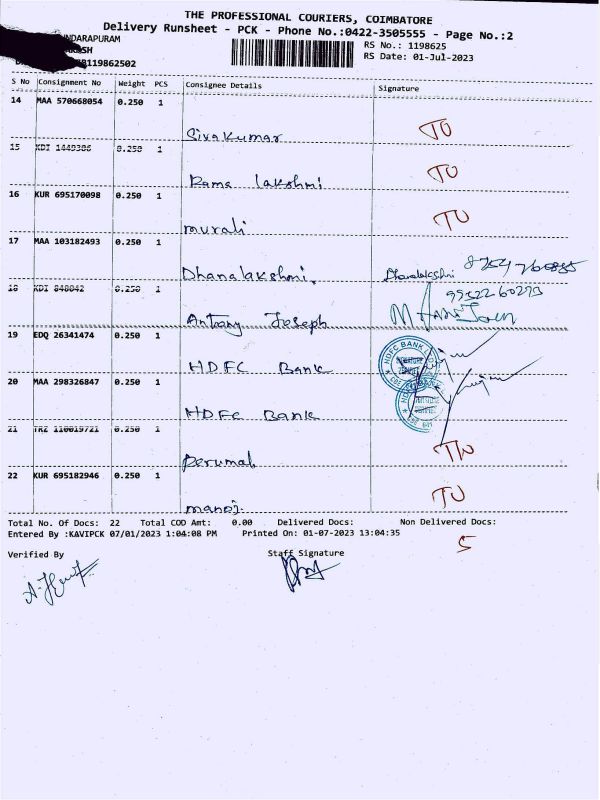 THE PROFESSIONAL COURIERS, COIMBATORE
Delivery Runsheet - PCK - Phone No.:0422-3505555 - Page No.:2
NDARAPURAM
RS No.: 1198625
SH
RS Date: 01-Jul-2023
8119862502
S No Consignment No Weight PCS Consignee Details Signature
14 MAA 570668054 0.250 1
Sivakumar TO
15 KDI 1449386 0.250 1
Rama lakshmi TO
16 KUR 695170098 0.250 1
murali TO
17 MAA 103182493 0.250 1
Dhanalakshmi. Dhanalakshmi 8754760885
18 KDI 848042 0.250 1
9952260273
Antony Joseph
19 EDQ 26341474 0.250 1
HDFC Bank HDFC BANK
20 MAA 298326847 0.250 1
HDFC Bank
21 TRZ 110019721 0.250 1
Perumal
22 KUR 695182946 0.250 1
manoj. TO
Total No. Of Docs: 22 Total COD Amt: 0.00 Delivered Docs: Non Delivered Docs:
Entered By :KAVIPCK 07/01/2023 1:04:08 PM Printed On: 01-07-2023 13:04:35
5
Verified By Staff Signature